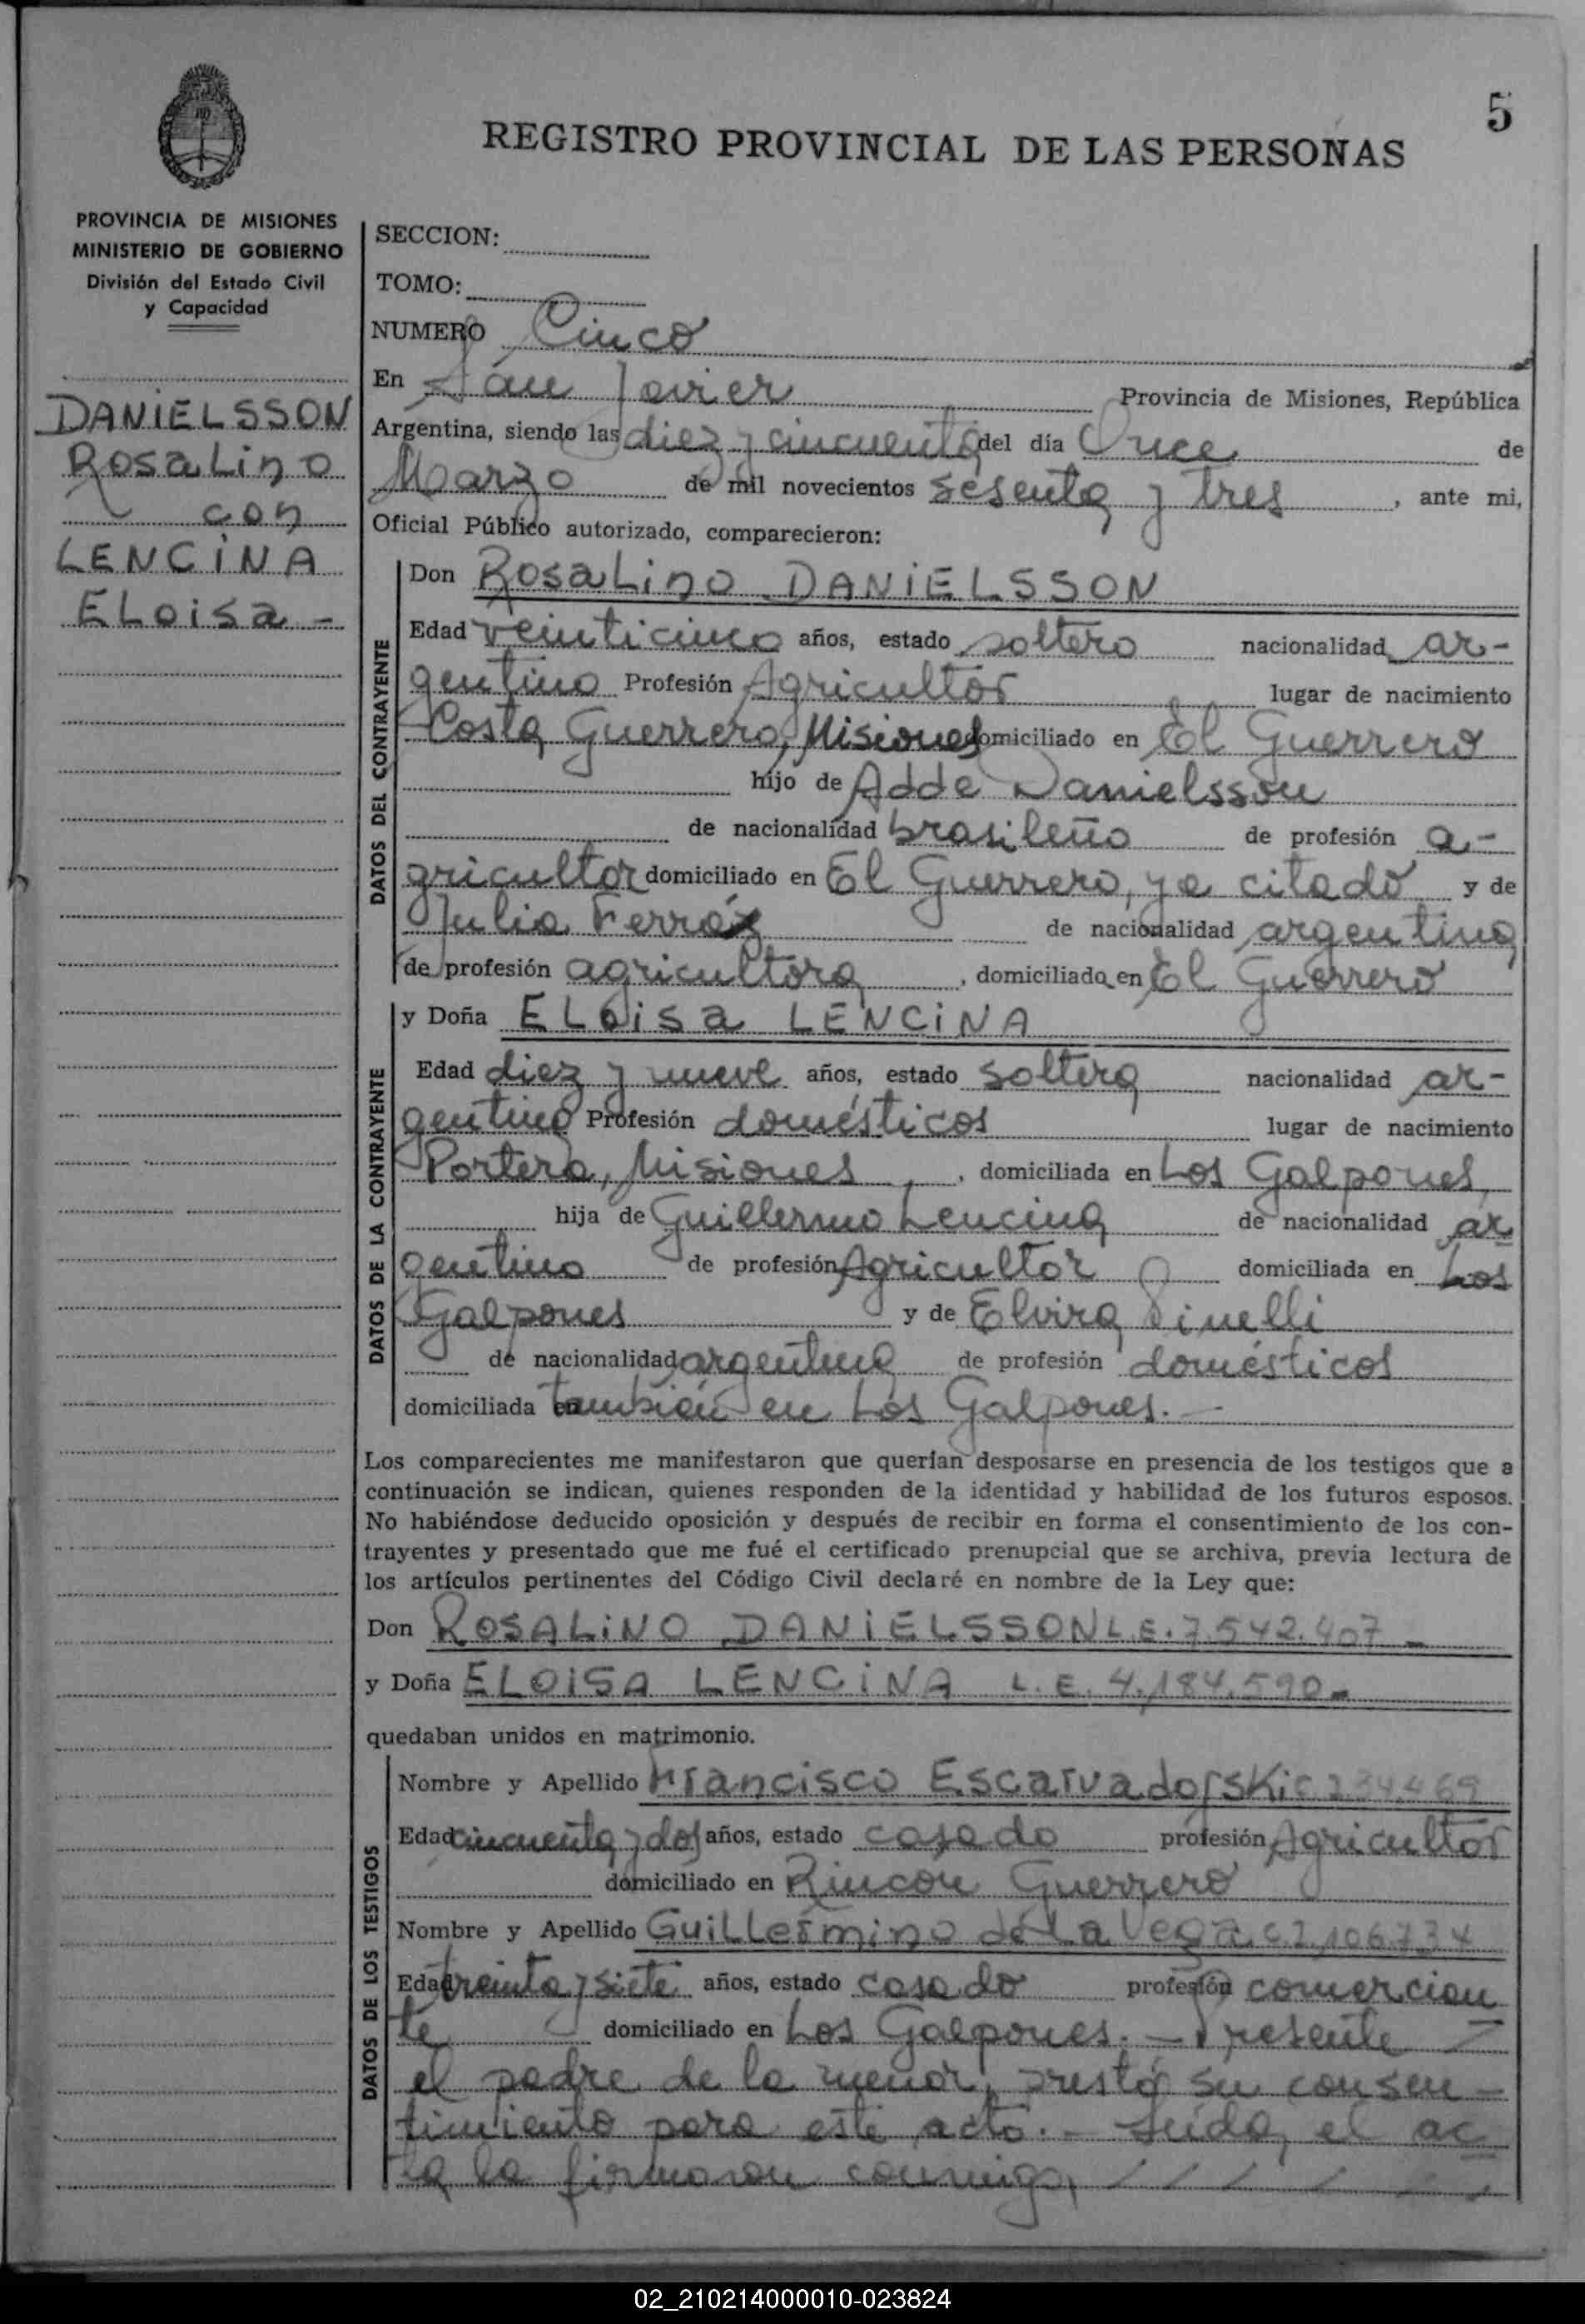 5
REGISTRO PROVINCIAL DE LAS PERSONAS
PROVINCIA DE MISIONES
MINISTERIO DE GOBIERNO
División del Estado Civil
y Capacidad
DANIELSSON
Rosalino
con
LENCINA
Eloisa -
SECCION:
TOMO:
NUMERO Cinco
En San Javier Provincia de Misiones, República
Argentina, siendo las diez y cincuenta del día Once de
Marzo de mil novecientos sesenta y tres, ante mi,
Oficial Público autorizado, comparecieron:
DATOS DEL CONTRAYENTE
Don Rosalino DANIELSSON
Edad veinticinco años, estado soltero nacionalidad ar-
gentino Profesión Agricultor lugar de nacimiento
Costa Guerrero, Misiones domiciliado en El Guerrero
hijo de Adde Danielsson
de nacionalidad brasileño de profesión a-
gricultor domiciliado en El Guerrero, ya citado y de
Julia Ferraz de nacionalidad argentina
de profesión agricultora, domiciliada en El Guerrero
DATOS DE LA CONTRAYENTE
y Doña ELoisa LENCINA
Edad diez y nueve años, estado soltera nacionalidad ar-
gentina Profesión domésticos lugar de nacimiento
Portera, Misiones, domiciliada en Los Galpones,
hija de Guillermo Lencina de nacionalidad ar
gentino de profesión Agricultor domiciliada en Los
Galpones y de Elvira Pinelli
de nacionalidad argentina de profesión domésticos
domiciliada también en Los Galpones. -
Los comparecientes me manifestaron que querían desposarse en presencia de los testigos que a
continuación se indican, quienes responden de la identidad y habilidad de los futuros esposos.
No habiéndose deducido oposición y después de recibir en forma el consentimiento de los con-
trayentes y presentado que me fué el certificado prenupcial que se archiva, previa lectura de
los artículos pertinentes del Código Civil declaré en nombre de la Ley que:
Don ROSALINO DANIELSSON L.E. 7.542.407 -
y Doña ELOISA LENCINA L.E. 4.184.590 -
quedaban unidos en matrimonio.
DATOS DE LOS TESTIGOS
Nombre y Apellido Francisco Escarvadorski
Edad cincuenta y dos años, estado casado profesión Agricultor
domiciliado en Rincon Guerrero
Nombre y Apellido Guillermino de La Vega C.I. 106.734
Edad treinta y siete años, estado casado profesión comercian
te domiciliado en Los Galpones. - Presente
el padre de la menor, prestó su consen-
timiento para este acto. - Leída, el ac
ta la firmaron conmigo,
02_210214000010-023824